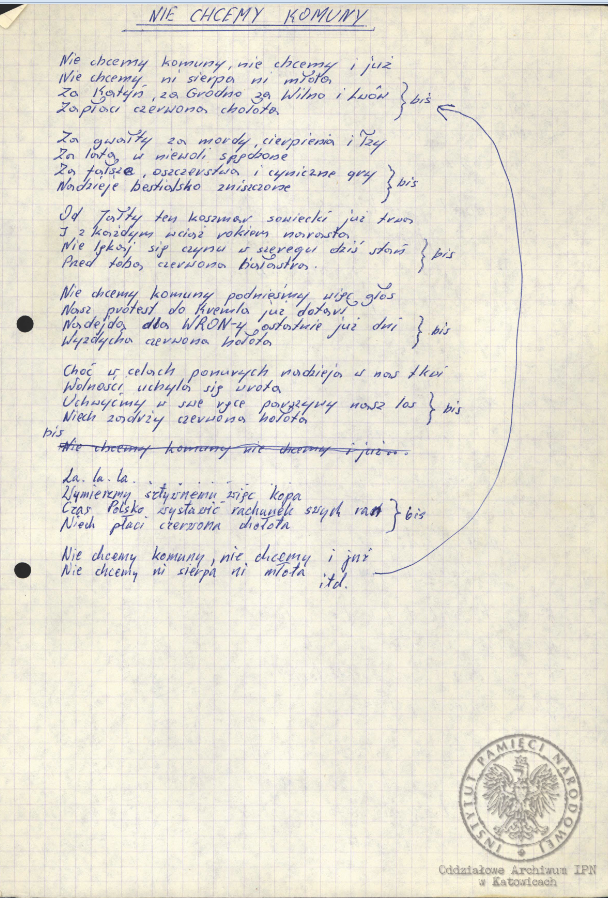 NIE CHCEMY KOMUNY
Nie chcemy komuny, nie chcemy i już
Nie chcemy ni sierpa ni młota
Za Katyń, za Grodno za Wilno i Lwów } bis
Zapłaci czerwona chołota
Za gwałty za mordy, cierpienia i łzy
Za lata, w niewoli spędzone
Za fałsze, oszczerstwa i cyniczne gry } bis
Nadzieje bestialsko zniszczone
Od Jałty ten koszmar sowiecki już trwa
I z każdym wciąż rokiem narasta
Nie lękaj się czynu w szeregu dziś stań } bis
Przed tobą czerwona balastra.
Nie chcemy komuny podnieśmy więc głos
Nasz protest do Kremla już dotarł
Nadejdą dla WRON-y ostatnie już dni } bis
Wyzdycha czerwona hołota
Choć w celach ponurych nadzieja w nas tkwi
Wolności uchyla się wrota
Uchwyćmy w swe ręce parszywy nasz los } bis
Niech zadrży czerwona hołota
bis
Nie chcemy komuny nie chcemy i już
La. la. la. . . . . . . .
Wymierzmy sztywnemu więc kopa
Czas Polsko wystawić rachunek swych ran } bis
Niech płaci czerwona chołota
Nie chcemy komuny, nie chcemy i już
Nie chcemy ni sierpa ni młota
itd.
INSTYTUT PAMIĘCI NARODOWEJ
Oddziałowe Archiwum IPN
w Katowicach